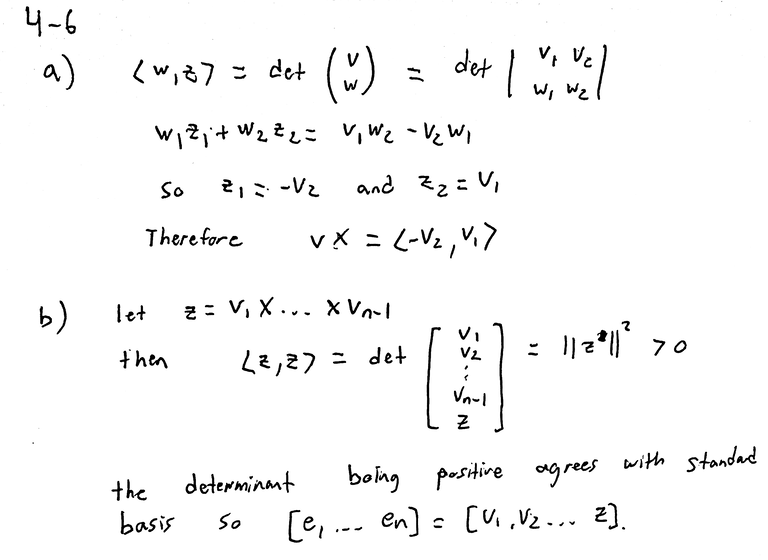 4-6
a) ⟨w,z⟩ = det (v w) = det | v₁ v₂ w₁ w₂ |
w₁z₁ + w₂z₂ = v₁w₂ - v₂w₁
So z₁ = -v₂ and z₂ = v₁
Therefore v × = ⟨-v₂, v₁⟩
b) let z = v₁ × ... × vₙ₋₁
then ⟨z,z⟩ = det [ v₁ v₂ ⋮ vₙ₋₁ z ] = ||z||² > 0
the determinant being positive agrees with standard
basis so [e₁ ... eₙ] = [v₁, v₂ ... z].